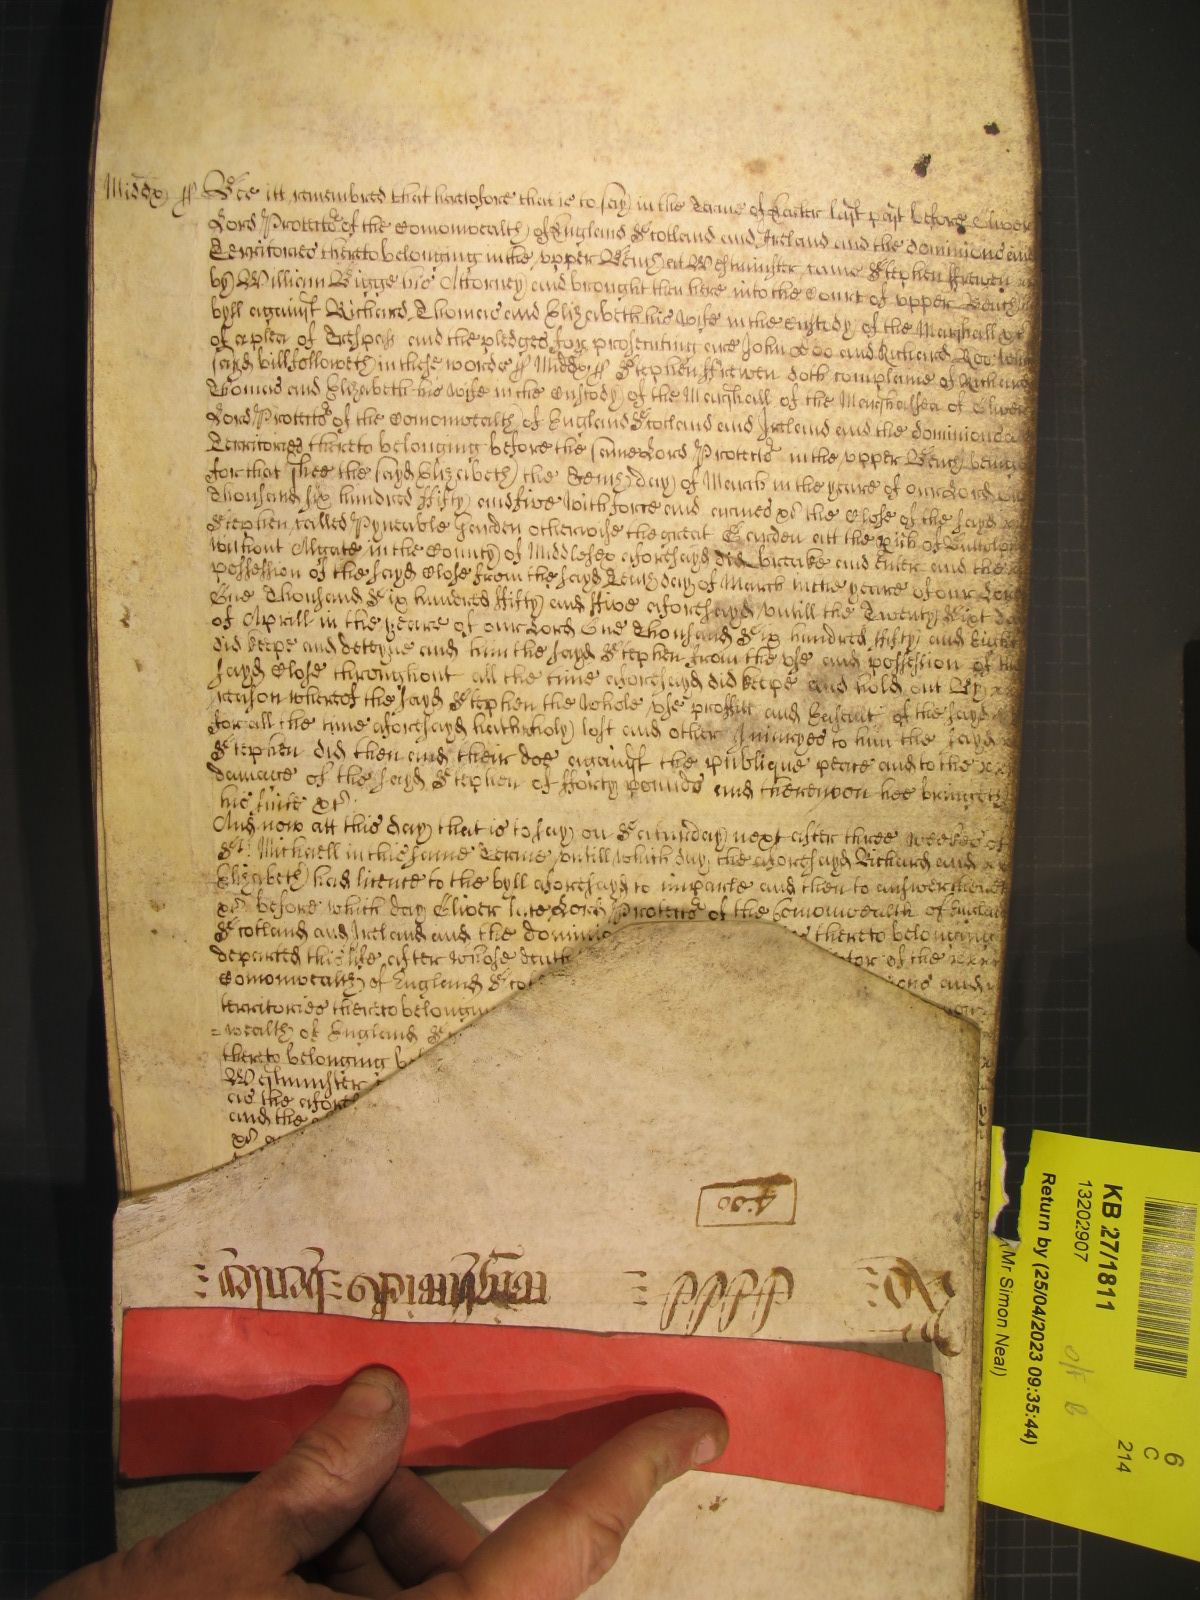 Midd̄x ss Bee itt remembred that heretofore that is to say in the Terme of Easter last past before Oliver
Lord Protector of the Comonwealth of England Scotland and Ireland and the dominions and
Territories thereto belonging in the upper Bench at Westminster came Stephen ffrewen
by William Bigge his Attorney and brought then here into the Court of upper Bench
byll against Richard Thomas and Elizabeth his wife in the Custody of the Marshall &c
of a plea of Trespass and the pledges for prosecuting are John Doo and Richard Roo which
sayd bill followeth in these words ss Midd̄x ss Stephen ffrewen doth complaine of Richard
Thomas and Elizabeth his wife in the Custody of the Marshall of the Marshalsea of Oliver
Lord Protector of the Comonwealth of England Scotland and Ireland and the dominions
Territories thereto belonging before the same Lord Protector in the upper Bench being
for that shee the sayd Elizabeth the Tenth day of March in the yeare of our Lord one
thousand six hundred ffifty and five with force and armes &c the Close of the sayd
Stephen called Pyneable Garden otherwise the great Garden att the pish of Buttolph
without Algate in the County of Middlesex aforesayd did breake and Enter and the
possession of the sayd Close from the sayd Tenth day of March in the yeare of our Lord
One Thousand Six hundred ffifty and ffive aforesayd untill the Twenty Sixt day
of Aprill in the yeare of our Lord One Thousand Six hundred ffifty and Eight
did keepe and deteyne and him the sayd Stephen from the use and possession of the
sayd Close throughout all the time aforesayd did keepe and hold out By
reason whereof the sayd Stephen the whole use proffitt and Easemt of the sayd
for all the time aforesayd hath wholy lost and other Iniuryes to him the sayd
Stephen did then and their doe against the publique peace and to the
damage of the sayd Stephen of fforty pounds and thereupon hee bringeth
his suite &c
And now att this day that is to say on Saturday next after three weekes of
St Michaell in this same Terme untill which day the aforesayd Richard and
Elizabeth had licence to the byll aforesayd to imparle and then to answer thereto
&c before which day Oliver late Lord Protector of the Comonwealth of England
Scotland and Ireland and the dominio thereto belonging
departed this life after whose death tor of the
Comonwealth of England Scot and
territories thereto belonging
=wealth of England
thereto belonging be
Westminster
as the afores
and the
&c
400
KB 27/1811
13202907
Return by (25/04/2023 09:35:44)
Mr Simon Neal)
6
C
214